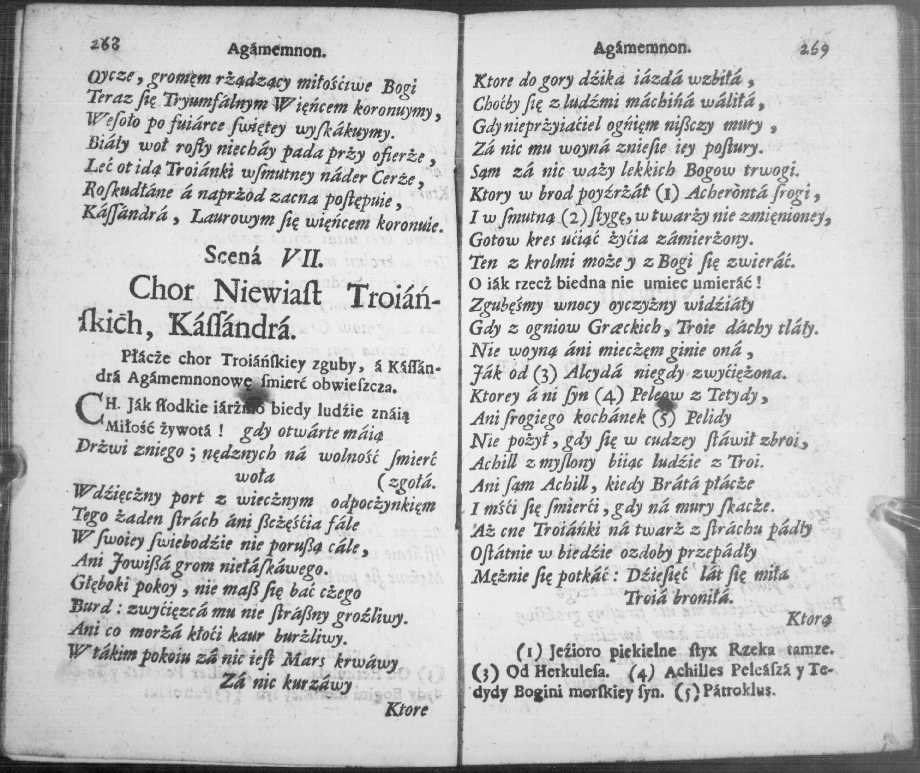 268
Agámemnon.
Oycze, gromęm rżądzący miłośćiwe Bogi
Teraz się Tryumfálnym Więńcem koronuymy,
Wesoło po fuiárce świętey wyskákuymy.
Biáły woł rosły niecháy pada przy ofierże,
Leć ot idą Troiánki wsmutney náder Cerże,
Roskudłáne á naprżod zacna postępuie,
Kássándrá, Laurowym się więńcem koronuie.
Scená VII.
Chor Niewiast Troiáń-
skich, Kássándrá.
Płácże chor Troiáńskiey zguby, á Kássán-
drá Agámemnonowę śmierć obwieszcza.
CH. Ják słodkie iárżmo biedy ludźie znáią
Miłość żywotá ! gdy otwárte máią
Drżwi zniego ; nędznych ná wolność śmierć
woła (zgołá.
Wdźięcżny port z wiecżnym odpocżynkięm
Tego żaden strách áni sczęśćia fále
W swoiey swiebodźie nie poruszą cále,
Ani Jowiszá grom niełáskáwego.
Głęboki pokoy, nie masz się bać cżego
Burd : zwyćięzcá mu nie strászny groźliwy.
Ani co morżá kłoći kaur burżliwy.
W tákim pokoiu zá nic iest Mars krwáwy
Zá nic kurzáwy
Ktore
Agámemnon.
269
Ktore do gory dźika iázdá wzbiłá,
Choćby się z ludźmi máchiná wáliłá,
Gdy nieprżyiaćiel ogńięm niszczy mury,
Zá nic mu woyná zniesie iey postury.
Sąm zá nic waży lekkich Bogow trwogi.
Ktory w brod poyźrżáł (1) Acherontá srogi,
I w smutną (2) stygę, w twarży nie zmięnioney,
Gotow kres ućiąć żyćia zámierżony.
Ten z krolmi może y z Bogi się zwieráć.
O iák rzecż biedna nie umiec umieráć !
Zgubęśmy wnocy oyczyżny widźiáły
Gdy z ogniow Græckich, Troie dáchy tláły.
Nie woyną áni miecżęm ginie oná,
Ják od (3) Alcydá niegdy zwyćiężona.
Ktorey á ni syn (4) Peleow z Tetydy,
Ani srogiego kochánek (5) Pelidy
Nie pożył, gdy się w cudzey stáwił zbroi,
Achill zmyslony biiąc ludźie z Troi.
Ani sąm Achill, kiedy Brátá płácże
I mśći się śmierći, gdy ná mury skacże.
Aż cne Troiáńki ná twarż z stráchu pádły
Ostátnie w biedźie ozdoby przepádły
Mężnie się potkáć : Dźiesięć lát się miła
Troiá broniłá.
Ktorą
(1) Jeźioro piękielne styx Rzeka tamze.
(3) Od Herkulesa. (4) Achilles Peleászá y Te-
dydy Bogini morskiey syn. (5) Pátroklus.